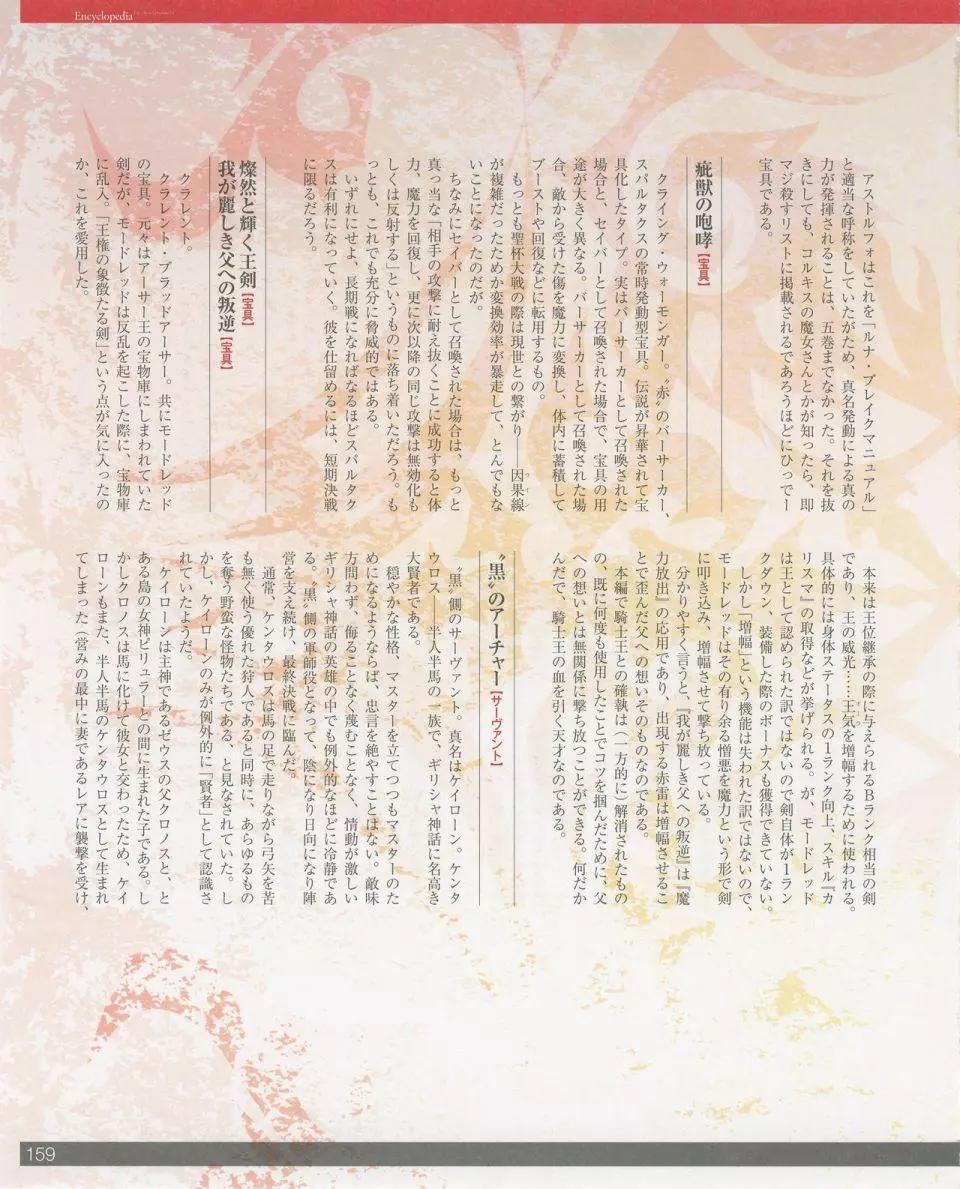 Encyclopedia
アストルフォはこれを「ルナ・ブレイクマニュアル」
と適当な呼称をしていたがため、真名発動による真の
力が発揮されることは、五巻までなかった。それを抜
きにしても、コルキスの魔女さんとかが知ったら、即
マジ殺すリストに掲載されるであろうほどにひっでー
宝具である。
疵獣の咆哮【宝具】
クライング・ウォーモンガー。〝赤〟のバーサーカー、
スパルタクスの常時発動型宝具。伝説が昇華されて宝
具化したタイプ。実はバーサーカーとして召喚された
場合と、セイバーとして召喚された場合で、宝具の用
途が大きく異なる。バーサーカーとして召喚された場
合、敵から受けた傷を魔力に変換し、体内に蓄積して
ブーストや回復などに転用するもの。
もっとも聖杯大戦の際は現世との繋がり――因果線
が複雑だったためか変換効率が暴走して、とんでもな
いことになったのだが。
ちなみにセイバーとして召喚された場合は、もっと
真っ当な「相手の攻撃に耐え抜くことに成功すると体
力、魔力を回復し、更に次以降の同じ攻撃は無効化も
しくは反射する」というものに落ち着いただろう。も
っとも、これでも充分に脅威的ではある。
いずれにせよ、長期戦になればなるほどスパルタク
スは有利になっていく。彼を仕留めるには、短期決戦
に限るだろう。
燦然と輝く王剣【宝具】
我が麗しき父への叛逆【宝具】
クラレント。
クラレント・ブラッドアーサー。共にモードレッド
の宝具。元々はアーサー王の宝物庫にしまわれていた
剣だが、モードレッドは反乱を起こした際に、宝物庫
に乱入。「王権の象徴たる剣」という点が気に入ったの
か、これを愛用した。
本来は王位継承の際に与えられるBランク相当の剣
であり、王の威光……王気を増幅するために使われる。
具体的には身体ステータスの1ランク向上、スキル『カ
リスマ』の取得などが挙げられる。が、モードレッド
は王として認められた訳ではないので剣自体が1ラン
クダウン、装備した際のボーナスも獲得できていない。
しかし「増幅」という機能は失われた訳ではないので、
モードレッドはその有り余る憎悪を魔力という形で剣
に叩き込み、増幅させて撃ち放っている。
分かりやすく言うと、『我が麗しき父への叛逆』は『魔
力放出』の応用であり、出現する赤雷は増幅させるこ
とで歪んだ父への想いそのものなのである。
本編で騎士王との確執は（一方的に）解消されたもの
の、既に何度も使用したことでコツを掴んだために、父
への想いとは無関係に撃ち放つことができる。何だか
んだで、騎士王の血を引く天才なのである。
〝黒〟のアーチャー【サーヴァント】
〝黒〟側のサーヴァント。真名はケイローン。ケンタ
ウロス――半人半馬の一族で、ギリシャ神話に名高き
大賢者である。
穏やかな性格、マスターを立てつつもマスターのた
めになるようならば、忠言を絶やすことはない。敵味
方問わず、侮ることなく蔑むことなく、情動が激しい
ギリシャ神話の英雄の中でも例外的なほどに冷静であ
る。〝黒〟側の軍師役となって、陰になり日向になり陣
営を支え続け、最終決戦に臨んだ。
通常、ケンタウロスは馬の足で走りながら弓矢を苦
も無く使う優れた狩人であると同時に、あらゆるもの
を奪う野蛮な怪物たちである、と見なされていた。し
かし、ケイローンのみが例外的に「賢者」として認識さ
れていたようだ。
ケイローンは主神であるゼウスの父クロノスと、と
ある島の女神ピリュラーとの間に生まれた子である。し
かしクロノスは馬に化けて彼女と交わったため、ケイ
ローンもまた、半人半馬のケンタウロスとして生まれ
てしまった（営みの最中に妻であるレアに襲撃を受け、
159